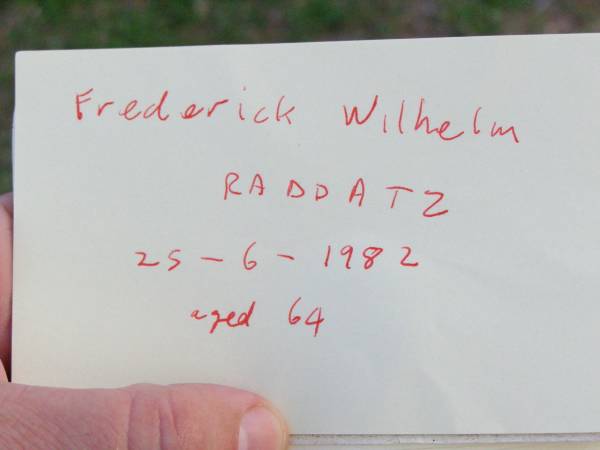 Frederick Wilhelm
RADDATZ
25-6-1982
aged 64